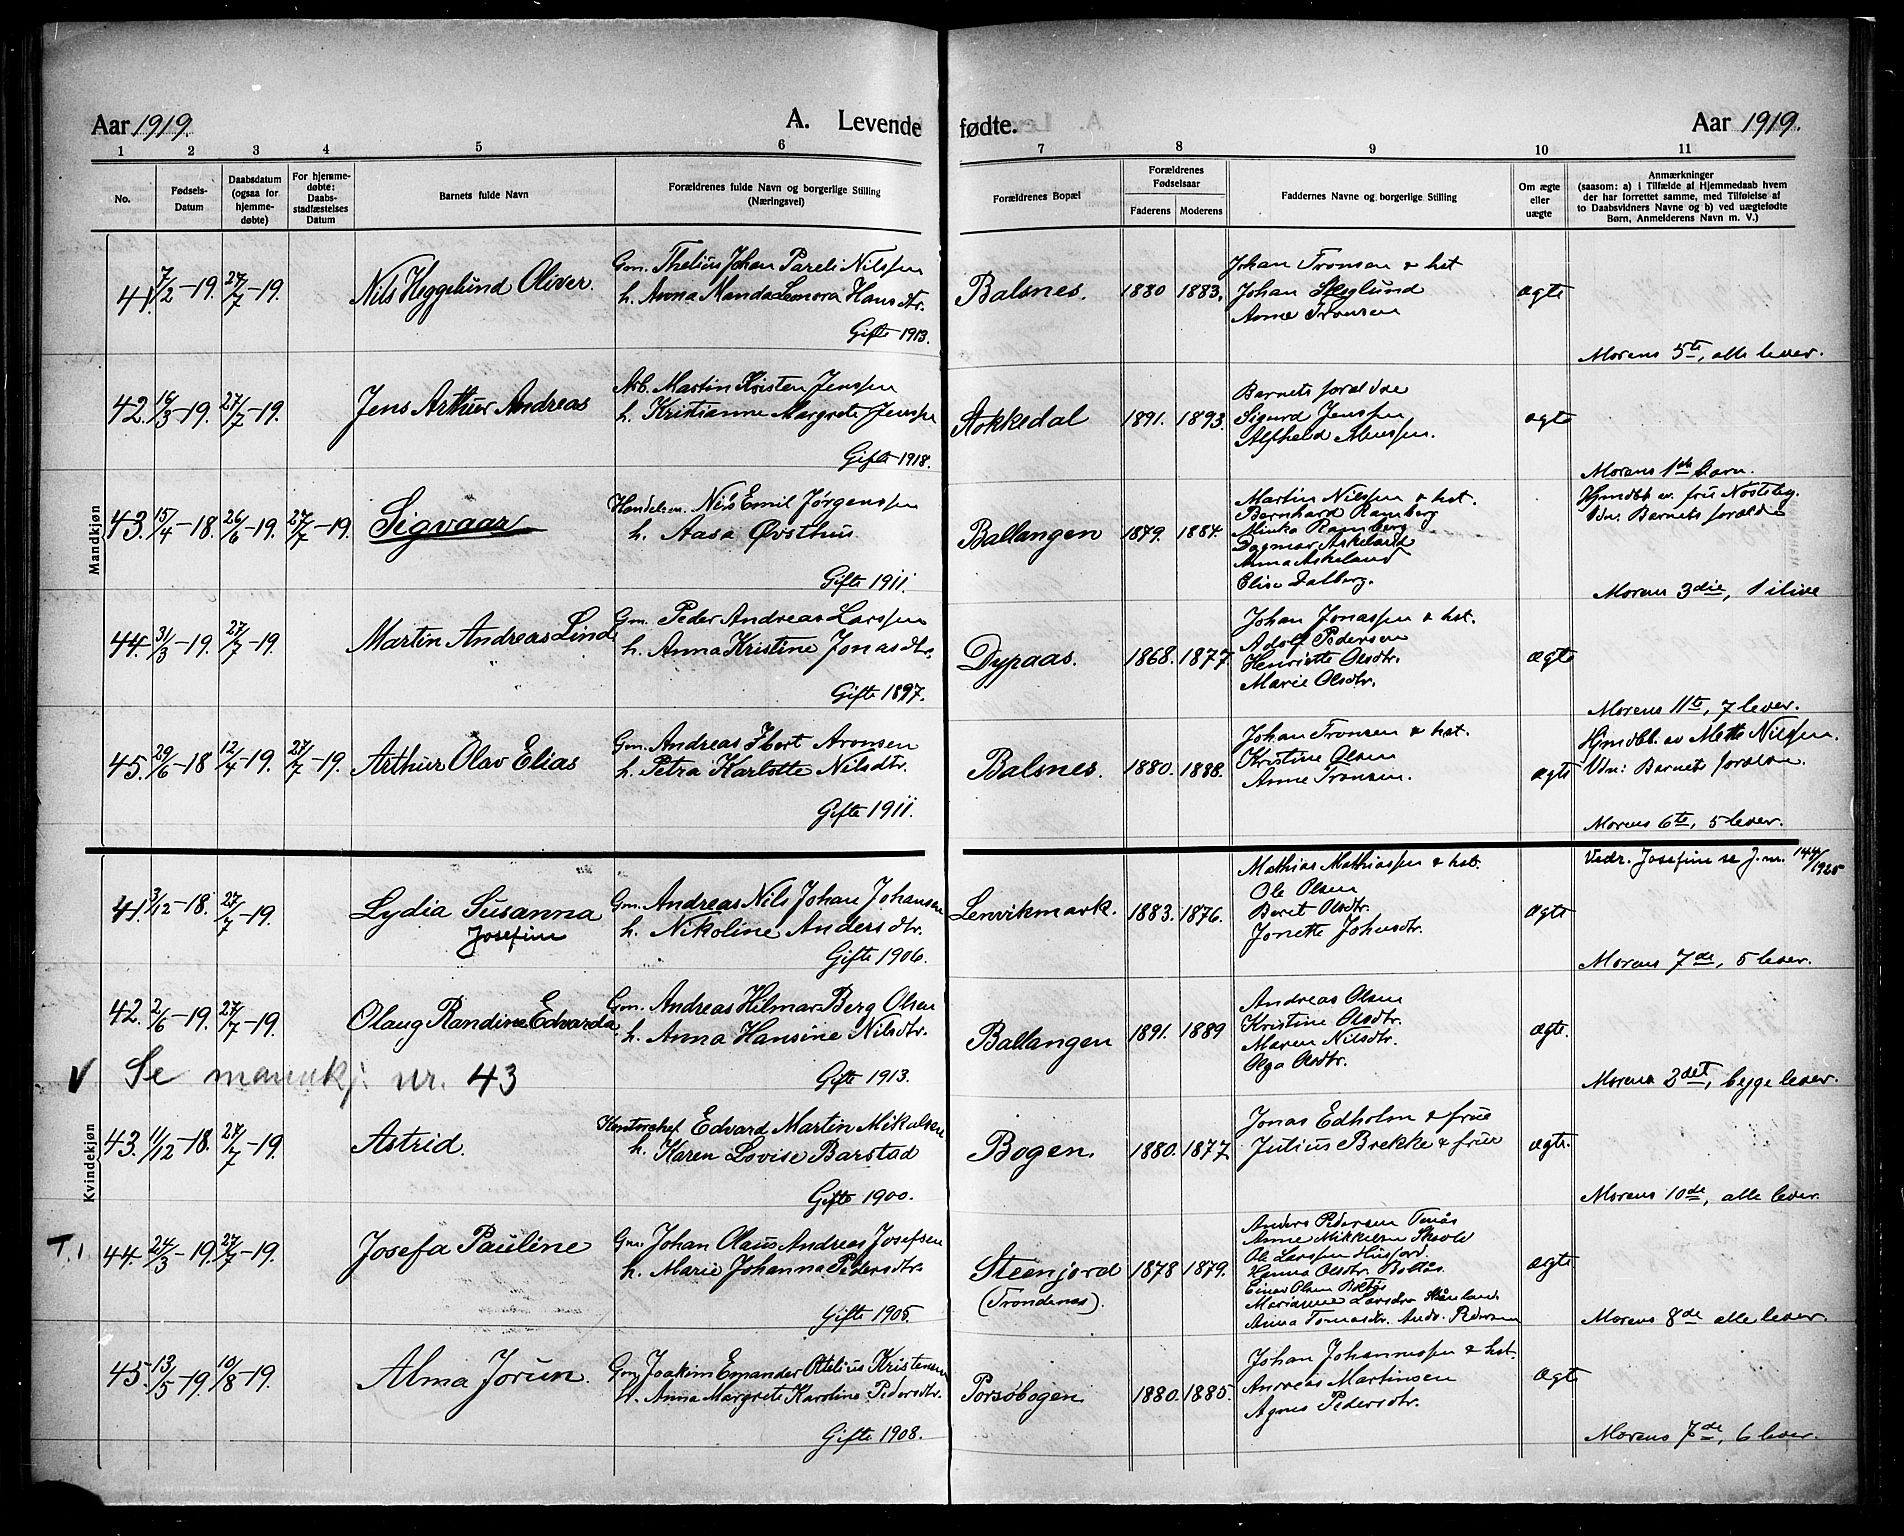 Aar 1919.
A. Levende fødte.
Aar 1919.
1 2 3 4 5 6 7 8 9 10 11
No.
Fødsels-
Datum
Daabsdatum
(ogsaa for
hjemme-
døbte)
For hjemme-
døbte:
Daabs-
stadfæstelses
Datum
Barnets fulde Navn
Forældrenes fulde Navn og borgerlige Stilling
(Næringsvei)
Forældrenes Bopæl
Forældrenes
Fødselsaar
Faderens Moderens
Faddernes Navne og borgerlige Stilling
Om ægte
eller
uægte
Anmærkninger
(saasom: a) i Tilfælde af Hjemmedaab hvem
der har forrettet samme, med Tilføielse af
to Daabsvidners Navne og b) ved uægtefødte
Børn, Anmelderens Navn m. V.)
Mandkjøn
41. 7/2-19. 27/7-19. Nils Heggelund Oliver
Gm. Thelius Johan Pareli Nilssen
h. Anna Manda Leonora Hansdtr.
Gifte 1913.
Balsnes. 1880 1883.
Johan Tronsen & hst
Johan Skoglund
Anne Tronsen
ægte
Morens 5te, alle lever.
42. 19. 27/7-19. Jens Arthur Andreas
Arb. Martin Kristen Jenssen
h. Kristianne Margrete Jenssen
Gifte 1918.
Stokkedal 1891. 1893.
Barnets forældre
Sigurd Jenssen
Alfhild
ægte
Morens 1ste barn.
43. 15/4-18. 26/6-19. 27/7-19. Sigvaar
Handelsm. Nils Emil Jørgenssen
h. Aasa Øvsthus
Gifte 1911.
Ballangen 1879. 1884.
Martin Nilssen & hst.
Bernhard Ramberg
Minka Ramberg
Dagmar Askeland
Anna Askeland
Elise Dalberg.
Hjmdbt. av fru
Vdn. Barnets forældre
Morens 3die, 1 ilive
44. 31/3-19. 27/7-19. Martin Andreas Lind
Gm. Peder Andreas Larssen
h. Anna Kristine Jonasdtr.
Gifte 1897.
Dypaas. 1868. 1877.
Johan Jonassen & hst.
Adolf Pedersen
Henriette Olsdtr.
Marie Olsdtr.
ægte
Morens 11te, 7 lever.
45. 29/6-18 12/4-19. 27/7-19. Arthur Olav Elias
Gm. Andreas Ibert Aronsen
h. Petra Karlotte Nilsdtr.
Gifte 1911.
Balsnes. 1880. 1888.
Johan Tronsen & hst.
Kristine Olsen
Anne Tronsen.
ægte
Hjmdbt. av Mette Nilssen.
Vdn: Barnets forældre.
Morens 6te, 5 lever.
Kvindekjøn
41. 3/12-18. 27/7-19. Lydia Susanna
Josefine
Gm. Andreas Nils Johan Johansen
h. Nikoline Andersdtr.
Gifte 1906.
Lenvikmark. 1883. 1876.
Mathias Mathiassen & hst.
Ole Olsen
Berit Olsdtr.
Jonette Johnsdtr.
ægte
Vedr. Josefine se J.nr. 144/1925
Morens 7de, 5 lever.
42. 2/6-19. 27/7-19. Olaug Randine Edvarda
Gm. Andreas Hilmar Berg Olsen
h. Anna Hansine Nilsdtr.
Gifte 1913.
Ballangen 1891. 1889
Andreas Olsen
Kristine Olsdtr.
Maren Nilsdtr.
Olga Olsdtr.
ægte.
Morens 2det, begge lever.
V Se mannkj. nr. 43
43. 11/12-18. 27/7-19. Astrid.
Kontorchef Edvard Martin Mikalsen
h. Karen Lovise Barstad
Gifte 1900.
Bogen. 1880. 1877.
Jonas Edholm & frue
Julius Brekke & frue
ægte.
Morens 10de, alle lever.
T.1 44. 24/3-19. 27/7-19. Josefa Pauline
Gm. Johan Olaus Andreas Josefsen
h. Marie Johanna Pedersdtr.
Gifte 1905.
Steenjord
(Trondenes). 1878 1879.
Anders Pedersen
Anne Mikkelsen
Ole Larssen Husjord.
Hanna Olsdtr. Boltås.
Einar Olsen Boltås
Marianne Larsdtr
Anna Tomasdtr. Andr. Pedersen
ægte
Morens 8de alle lever.
45. 13/5-19. 10/8-19. Alma Jorun.
Gm. Joakim Emander Otelius Kristensen
h. Anna Margrete Karoline Pedersdtr.
Gifte 1908.
Porsøbogen 1880. 1885.
Johan Johannessen & hst.
Andreas Martinsen
Agnes Pedersdtr.
Ægte
Morens 7de, 6 lever.